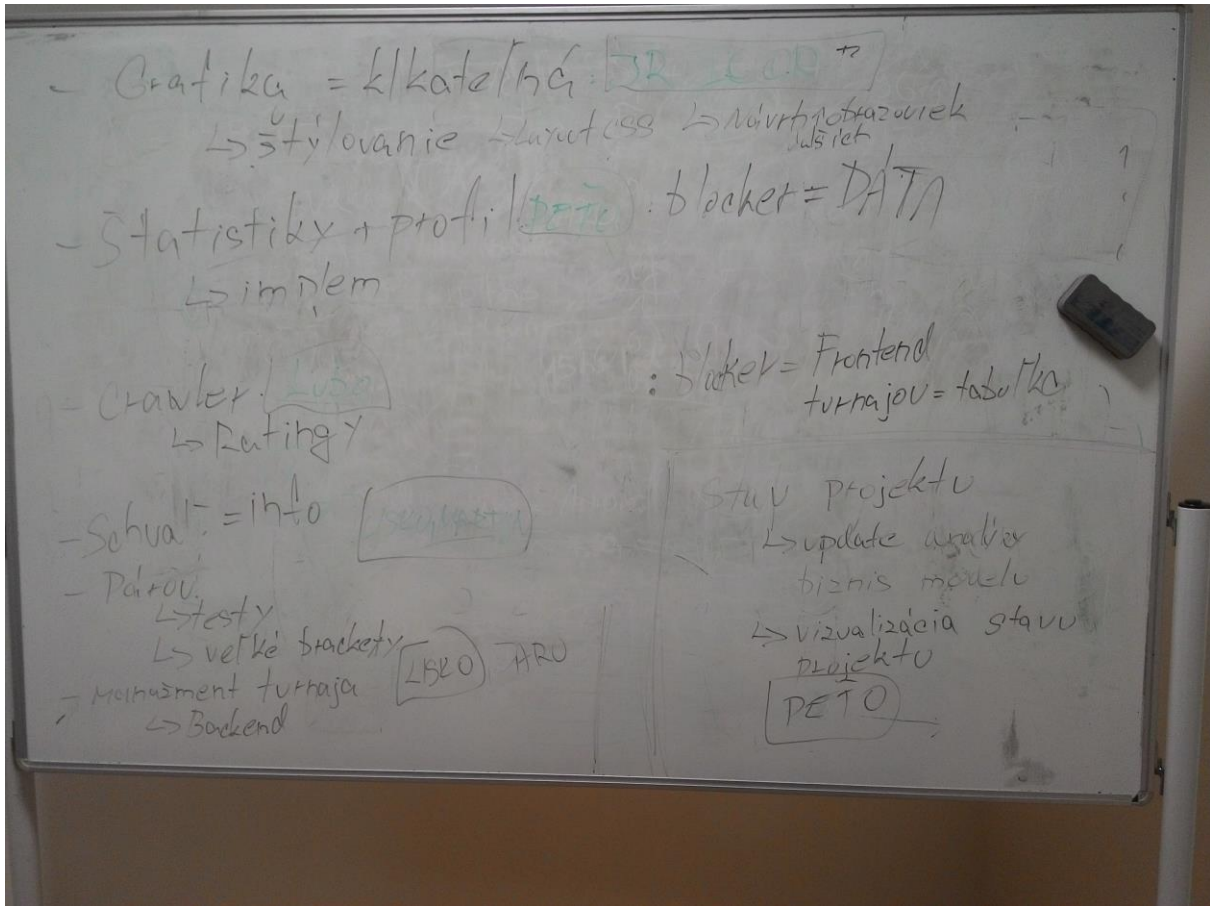 - Grafika = klkateľná :
↳ štýlovanie ↳ Layout css ↳ Návrh obrazoviek
ďalších
- Štatistiky + profil PEŤO : blocker = DÁTA
↳ implem
- Crawler ĽUBO : blocker = Frontend
turnajov = tabuľka
↳ Ratingy
- Schvaľ. = info
- Párov.
↳ testy
↳ veľké brackety
- Manažment turnaja JARO
↳ Backend
Stav projektu
↳ update analýzy
biznis modelu
↳ vizualizácia stavu
projektu
PEŤO